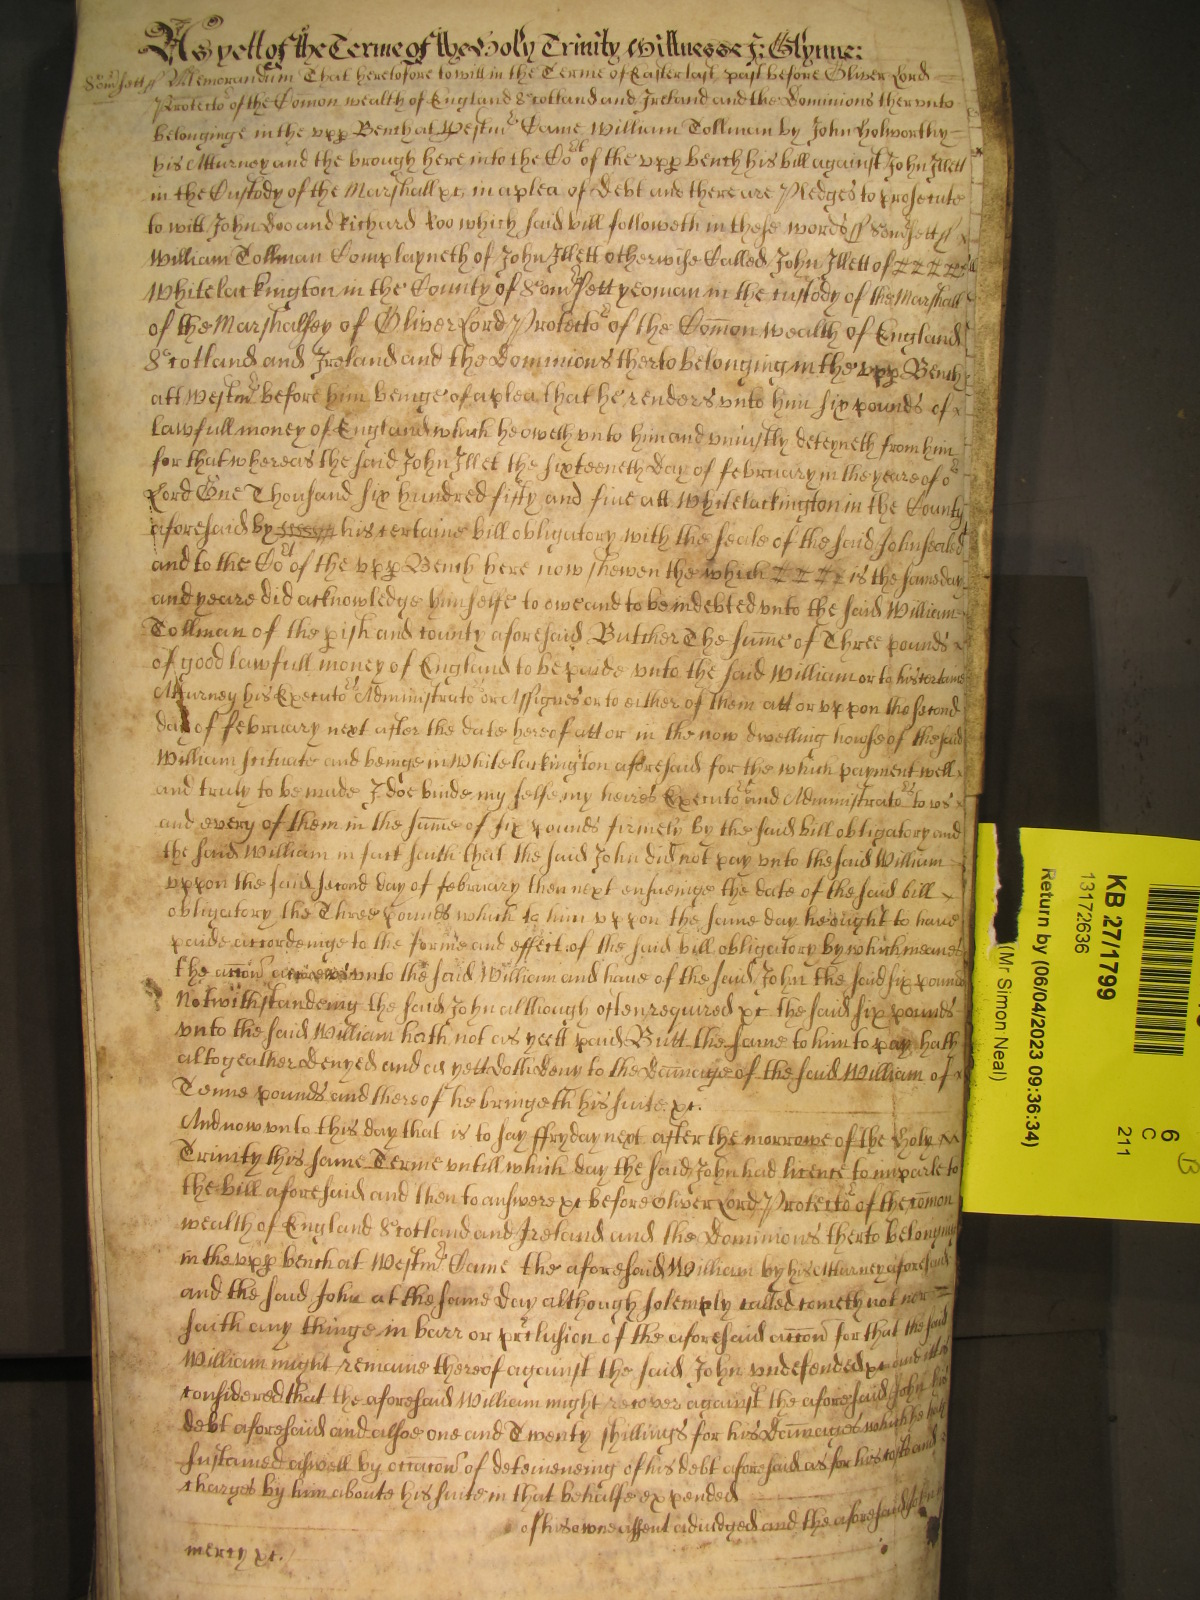 As yett of the Terme of the Holy Trinity Wittnesse J: Glynne:
Somsett ss Memorandum That heretofore to witt in the Terme of Easter last past before Oliver Lord
Protector of the Comon wealth of England Scotland and Ireland and the Dominions thervnto
belonginge in the vpp Bench at Westmr Came William Tollman by John Holworthy
his Atturney and the brough here into the Cort of the vpp bench his bill against John Jllett
in the Custody of the Marshall &c in a plea of Debt and there are Pledges to prosecute
to witt John Doo and Richard Roo which said bill followeth in these words ss Somsett ss
William Tollman Complayneth of John Jllett otherwise Called John Jllett of
Whitelackington in the County of Somsett yeoman in the custody of the Marshall
of the Marshalsey of Oliver Lord Protector of the Comon wealth of England
Scotland and Ireland and the Dominions therto belonging in the vpp Bench
att Westmr before him beinge of a plea that he renders vnto him six pounds of
lawfull money of England which he oweth vnto him and vniustly deteyneth from him
for that whereas the said John Jllet the sixteeneth day of february in the yeare of or
Lord One Thousand six hundred fifty and five att Whitelackington in the County
aforesaid by his certaine bill obligatory with the seale of the said John sealed
and to the Cort of the vpp Bench here now shewen the which is the same day
and yeare did acknowledge himselfe to owe and to be indebted vnto the said William
Tollman of the pish and county aforesaid Butcher The sume of Three pounds
of good lawfull money of England to be paide vnto the said William or to his certaine
Atturney his Executors Administrators or Assignes or to either of them att or vppon the second
day of february next after the date hereof att or in the now dwelling house of the said
William scituate and beinge in Whitelackington aforesaid for the which payment well
and truly to be made J doe binde my selfe my heires Executors and Administrators to vs
and every of them in the sume of six pounds firmely by the said bill obligatory and
the said William in fact saith that the said John did not pay vnto the said William
vppon the said second day of february then next ensueinge the date of the said bill
obligatory the Three pounds which to him vppon the same day he ought to have
paide accordeinge to the forme and effect of the said bill obligatory by which meanes
the accon vnto the said William and have of the said John the said six pounds
Notwithstandeing the said John allthough often required &c the said six pounds
vnto the said William hath not as yett paid Butt the same to him to pay hath
altogeather denyed and as yett doth deny to the Damage of the said William of
Tenne pounds and thereof he bringeth his suite &c.
And now vnto this day that is to say ffryday next after the morrowe of the Holy
Trinity this same Terme vntill which day the said John had licence to imparle to
the bill aforesaid and then to answere &c before Oliver Lord Protector of the comon
wealth of England Scotland and Ireland and the Dominions therto belonginge
in the vpp bench at Westmr Came the aforesaid William by his Atturney aforesaid
and the said John at the same day although solemply called cometh not nor
saith any thinge in barr or preclusion of the aforesaid accon for that the said
William might remaine thereof against the said John vndefended &c
considered that the aforesaid William might recover against the aforesaid John his
debt aforesaid and alsoe one and Twenty shillings for his Damages which he hath
sustained aswell by occacon of deteineneing of his debt aforesaid as for his costs and
charges by him aboute his suite in that behalfe expended
of his owne assent adiudged and the aforesaid John in
mercy &c.
KB 27/1799
13172636
Return by (06/04/2023 09:36:34)
(Mr Simon Neal)
6
C
211
B